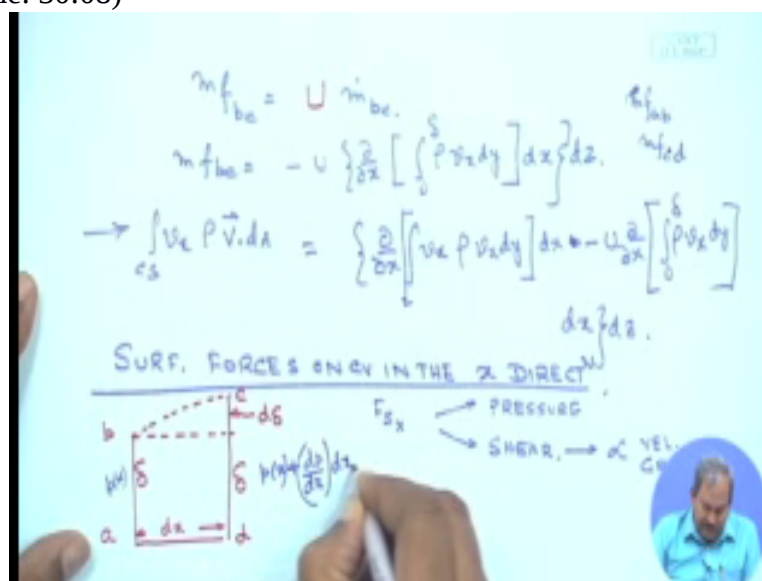 mf_bc = U ṁ_bc.
mf_ab
mf_bc = - U {∂/∂x [∫_0^δ ρ v_x dy] dx} dz.
mf_cd
→ ∫_cs v_x ρ V⃗.dA = {∂/∂x [∫ v_x ρ v_x dy] dx - U ∂/∂x [∫_0^δ ρ v_x dy]
dx} dz.
SURF. FORCES ON CV IN THE x DIRECTN.
c
b
dδ
F_Sx
PRESSURE
SHEAR. → ∝ VEL.
p(x) δ
δ p(x)+(dp/dx) dx
a dx d